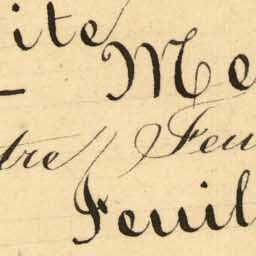 ite
- Me
tre / Feu
Feuil